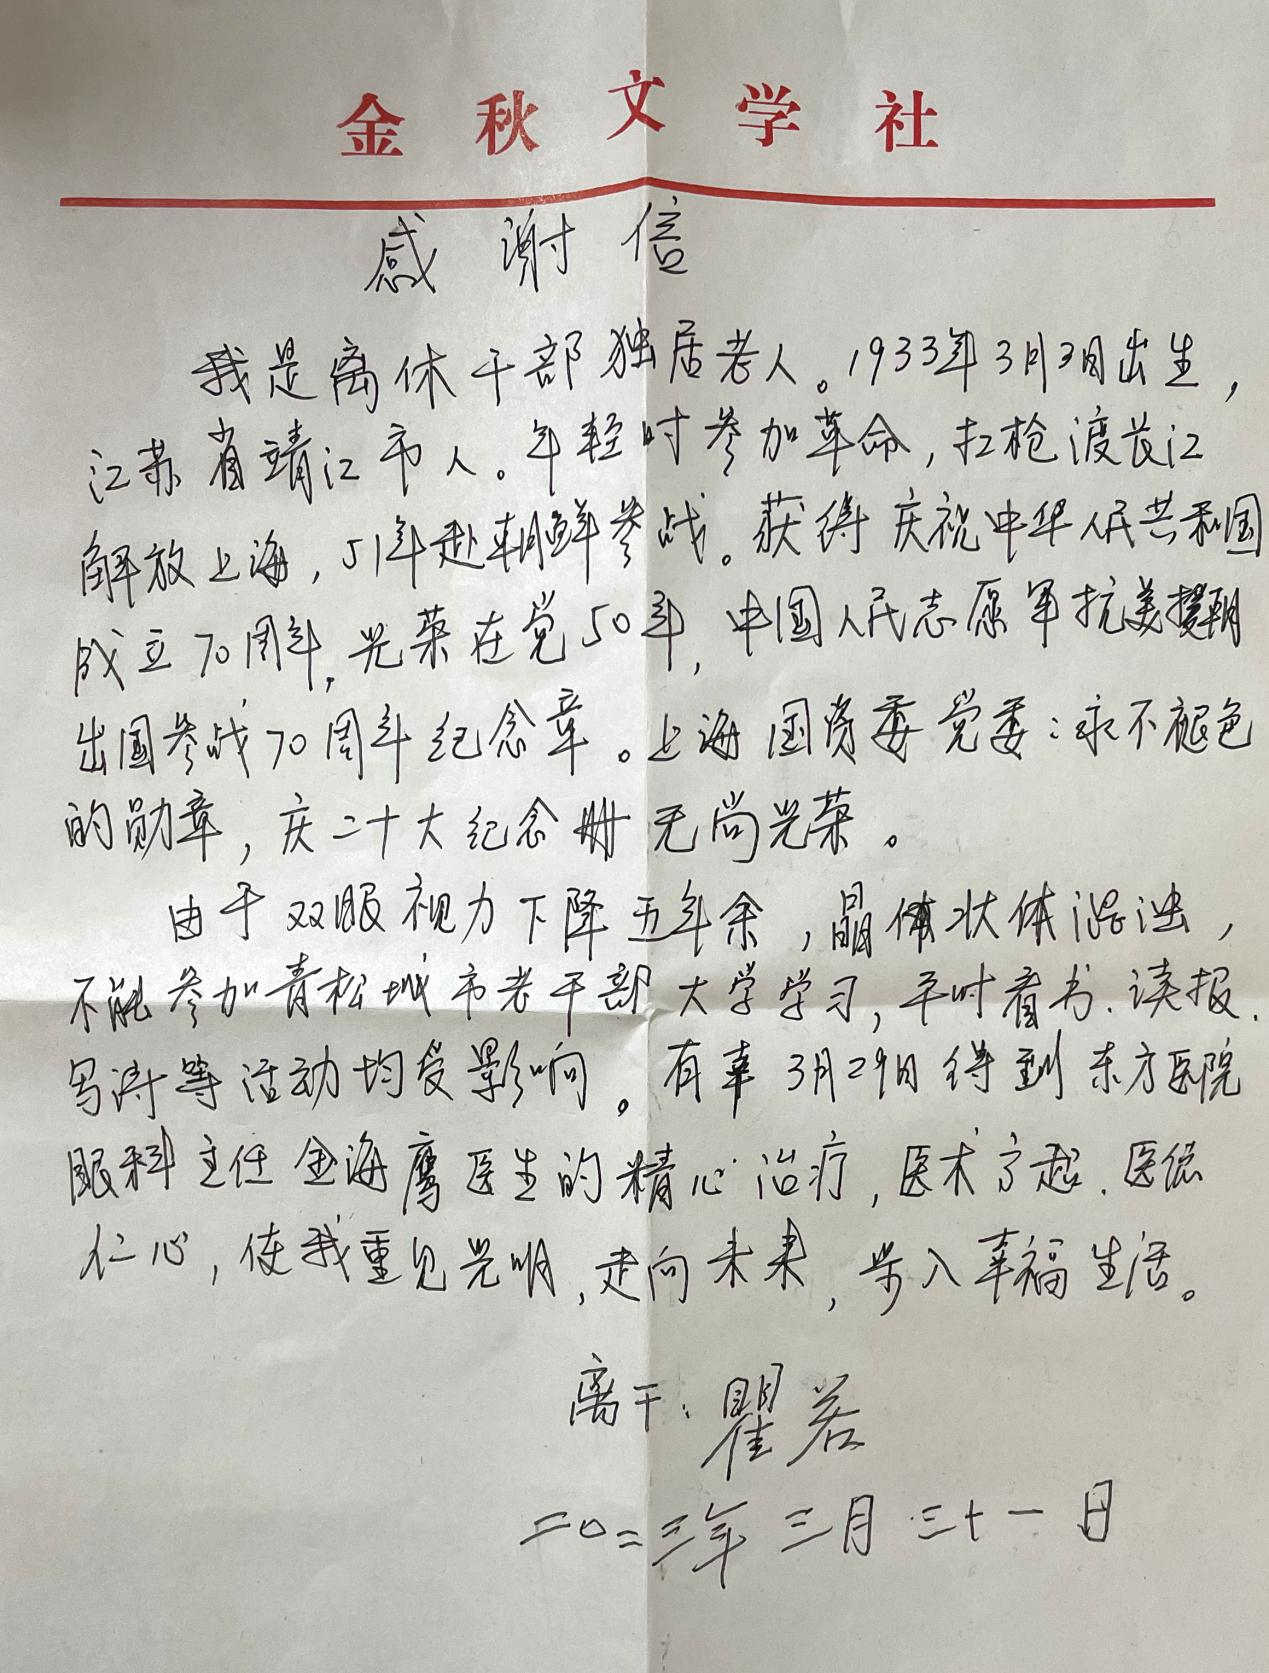 金秋文学社
感谢信
我是离休干部独居老人。1933年3月3日出生，
江苏省靖江市人。年轻时参加革命，扛枪渡长江
解放上海，51年赴朝鲜参战。获得庆祝中华人民共和国
成立70周年，光荣在党50年，中国人民志愿军抗美援朝
出国参战70周年纪念章。上海国资委党委：永不褪色
的勋章，庆二十大纪念册无尚光荣。
由于双眼视力下降五年余，晶体状体混浊，
不能参加青松城市老干部大学学习，平时看书、读报、
写诗等活动均受影响。有幸3月29日得到东方医院
眼科主任金海鹰医生的精心治疗，医术高超、医德
仁心，使我重见光明，走向未来，步入幸福生活。
离干：瞿若
二〇二三年三月三十一日